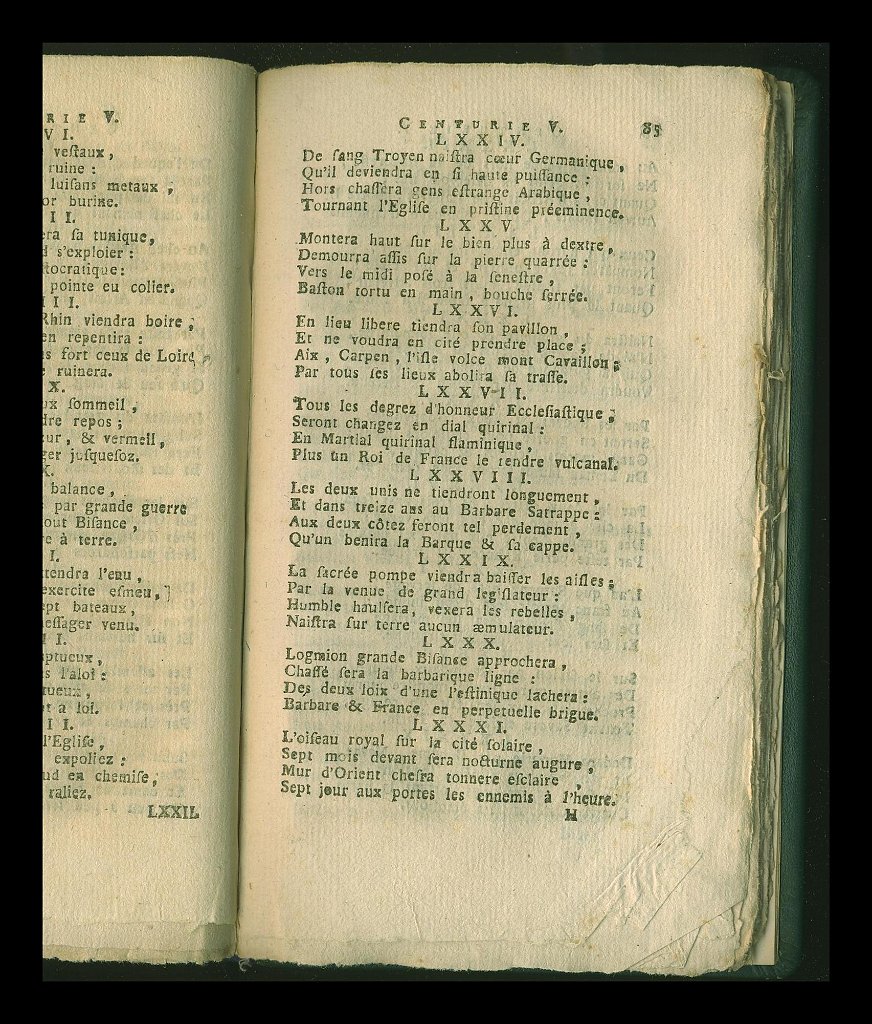 RIE V.
VI.
veſtaux,
ruine :
luiſans metaux ;
or burine.
II.
era ſa tunique,
d s'exploier :
tocratique :
pointe eu colier.
III.
Rhin viendra boire ;
en repentira :
s fort ceux de Loire
ruinera.
X.
ux ſommeil,
dre repos ;
ur, & vermeil,
ger juſqueſoz.
X.
balance,
par grande guerre
out Biſance,
re à terre.
I.
ttendra l'enu,
exercite eſmeu,]
ept bateaux,
eſſager venu.
II.
ptueux,
s l'aloi :
tueux,
et a loi.
II.
l'Egliſe,
expoliez :
ud en chemiſe,
raliez.
LXXII.
CENTURIE V. 85
LXXIV.
De ſang Troyen naiſtra cœur Germanique,
Qu'il deviendra en ſi haute puiſſance :
Hors chaſſera gens eſtrange Arabique,
Tournant l'Egliſe en priſtine préeminence.
LXXV
Montera haut ſur le bien plus à dextre,
Demourra aſſis ſur la pierre quarrée :
Vers le midi poſé à la ſeneſtre,
Baſton tortu en main, bouche ſerrée.
LXXVI.
En lieu libere tiendra ſon pavillon,
Et ne voudra en cité prendre place ;
Aix, Carpen, l'iſle volce mont Cavaillon ;
Par tous ſes lieux abolira ſa traſſe.
LXXVII.
Tous les degrez d'honneur Eccleſiaſtique ;
Seront changez en dial quirinal :
En Martial quirinal flaminique,
Plus un Roi de France le rendre vulcanal.
LXXVIII.
Les deux unis ne tiendront longuement,
Et dans treize ans au Barbare Satrappe :
Aux deux côtez feront tel perdement,
Qu'un benira la Barque & ſa cappe.
LXXIX.
La ſacrée pompe viendra baiſſer les aiſles ;
Par la venue de grand legiſlateur :
Humble haulſera, vexera les rebelles,
Naiſtra ſur terre aucun æmulateur.
LXXX.
Logmion grande Biſance approchera,
Chaſſé ſera la barbarique ligne :
Des deux loix d'une l'eſtinique lachera :
Barbare & France en perpetuelle brigue.
LXXXI.
L'oiſeau royal ſur la cité ſolaire,
Sept mois devant ſera nocturne augure,
Mur d'Orient cheſra tonnere eſclaire ,
Sept jour aux portes les ennemis à l'heure.
H